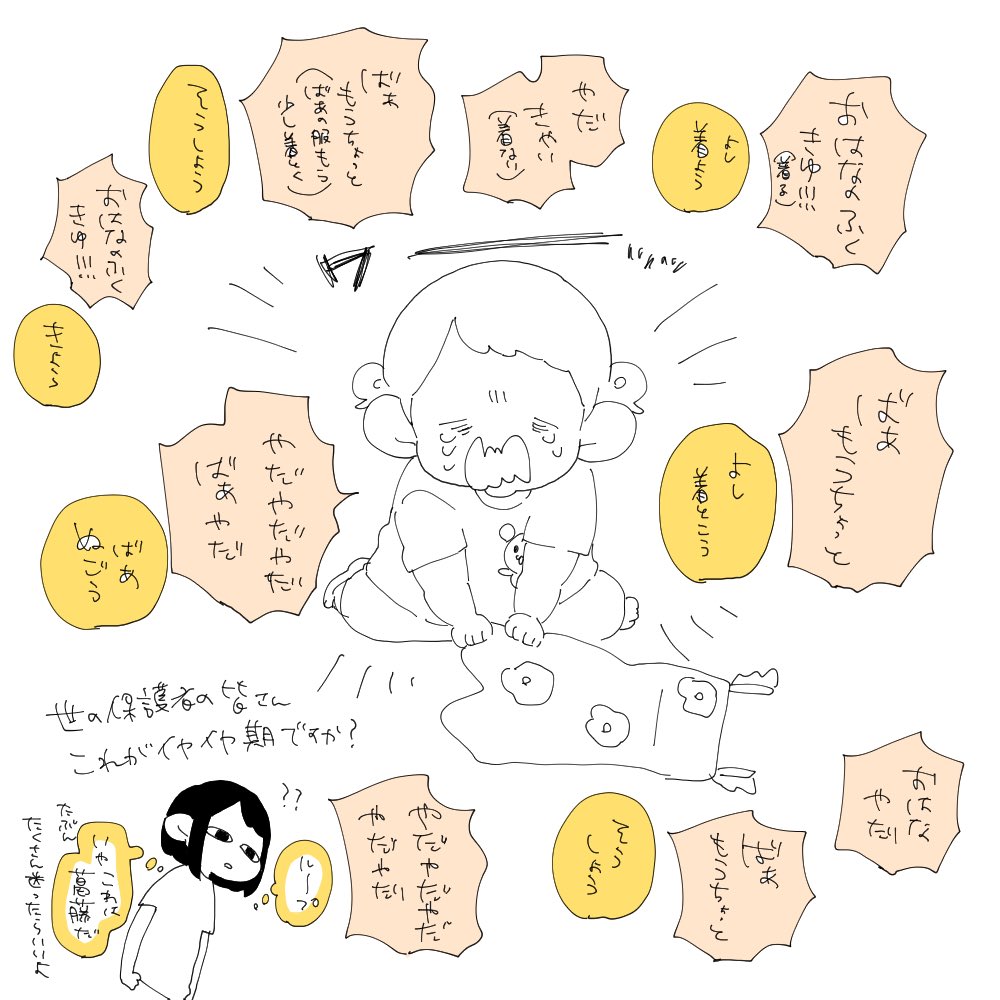 おはなのふく
きゆ!!!
(着る)
よし
着よう
やだ
きゃい
(着ない)
ばぁ
もうちょっと
(ばぁの服もう
少し着とく)
そうしよう
おはなのふく
きゆ!!!
きよう
ばぁ
もうちょっと
よし
着とこう
やだやだやだ
ばぁやだ
ばぁ
ぬごう
おはな
やだ
ばぁ
もうちょっと
そう
しよう
やだやだやだ
やだやだ
世の保護者の皆さん
これがイヤイヤ期ですか?
??
ループ
いやこれは
葛藤だ
たぶん
たくさん迷ったらいいよ